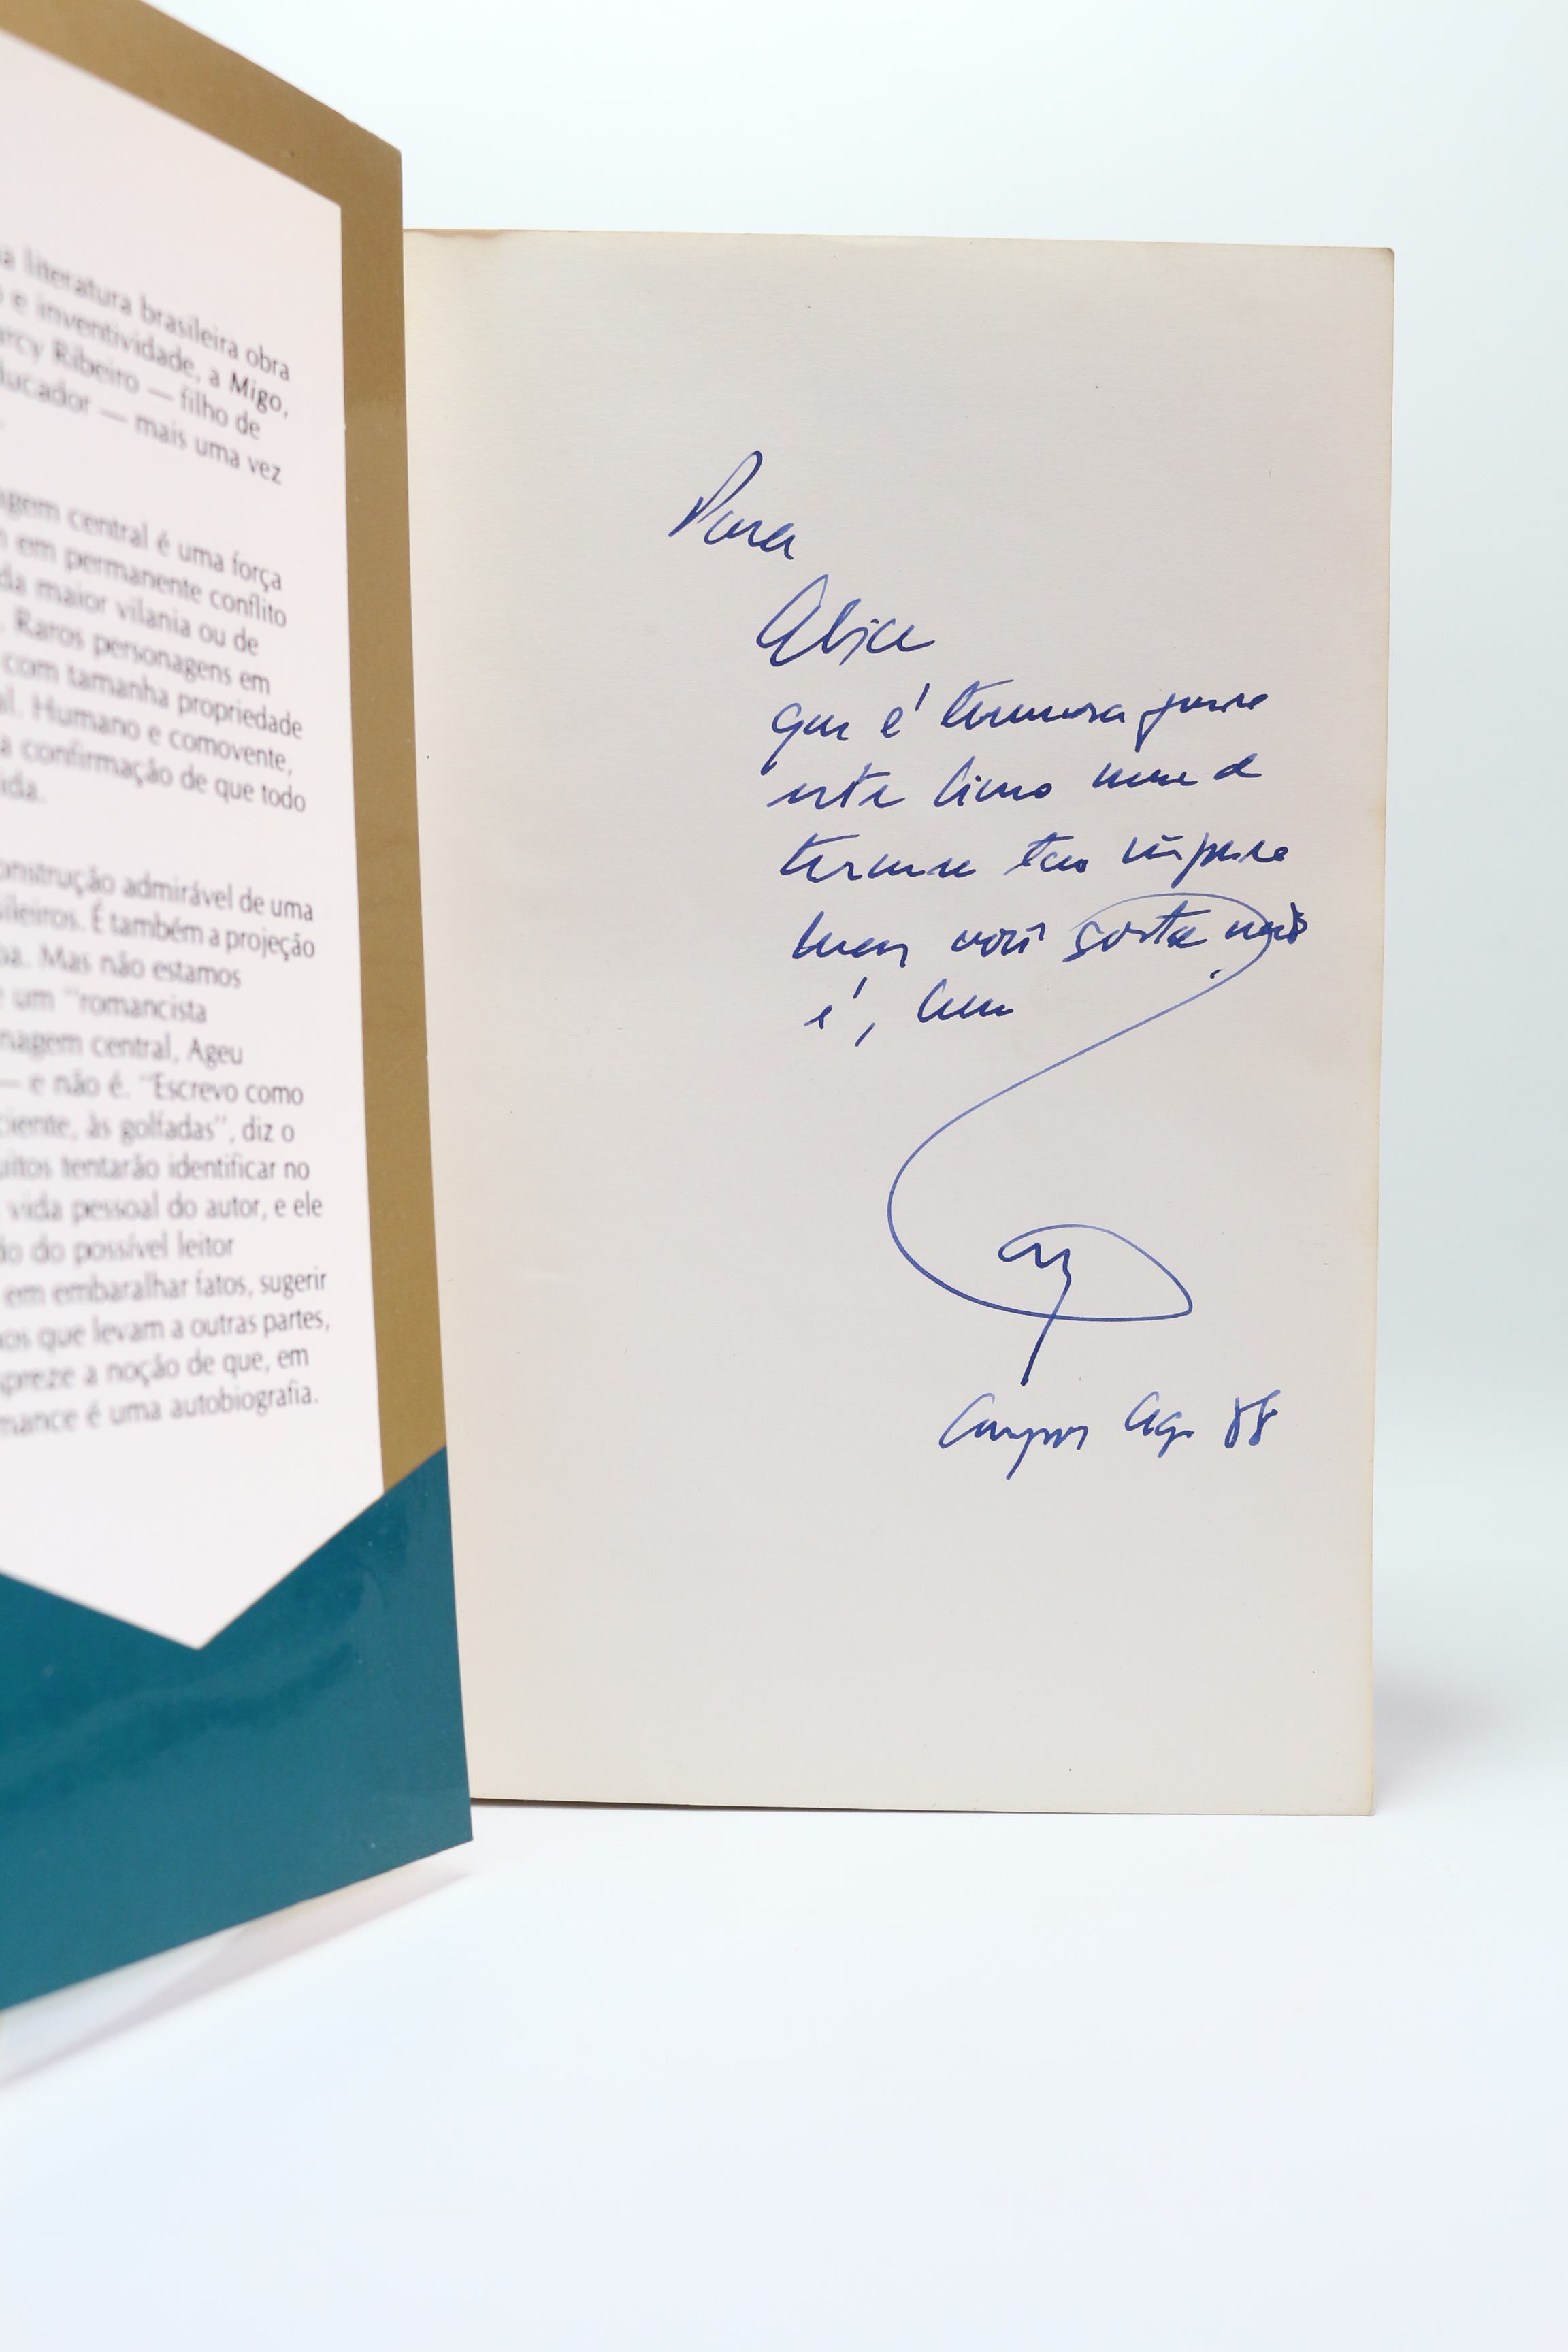 a literatura brasileira obra
e inventividade, a Migo,
arcy Ribeiro — filho de
ducador — mais uma vez
agem central é uma força
em permanente conflito
da maior vilania ou de
. Raros personagens em
com tamanha propriedade
al. Humano e comovente,
a confirmação de que todo
ida.
onstrução admirável de uma
sileiros. É também a projeção
oa. Mas não estamos
e um "romancista
nagem central, Ageu
— e não é. "Escrevo como
ciente, às golfadas", diz o
uitos tentarão identificar no
vida pessoal do autor, e ele
ão do possível leitor
em embaralhar fatos, sugerir
hos que levam a outras partes,
spreze a noção de que, em
mance é uma autobiografia.
Para
Alice
que é ternura pura
este livro
você gosta
é,
Campos Ago 88